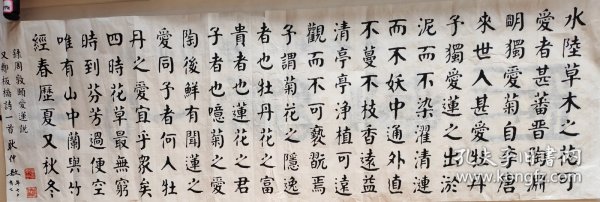 水陸草木之花可
愛者甚蕃晉陶淵
明獨愛菊自李唐
來世人甚愛牡丹
予獨愛蓮之出淤
泥而不染濯清漣
而不妖中通外直
不蔓不枝香遠益
清亭亭淨植可遠
觀而不可褻翫焉
予謂菊花之隱逸
者也牡丹花之富
貴者也蓮花之君
子者也噫菊之愛
陶後鮮有聞蓮之
愛同予者何人牡
丹之愛宜乎眾矣
四時花草最無窮
時到芬芳過便空
唯有山中蘭與竹
經春歷夏又秋冬
錄周敦頤愛蓮說
又鄭板橋詩一首